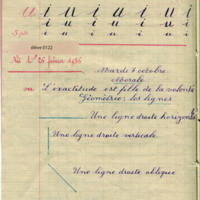 u i u i u i u i
i i i i i i
5 pts u u u u u u
élève 0122
Né le 26 février 1926
Mardi 7 octobre
Morale
L'exactitude est fille de la volonté
Géométrie: les lignes
Une ligne droite horizontale
Une ligne droite verticale.
Une ligne droite oblique